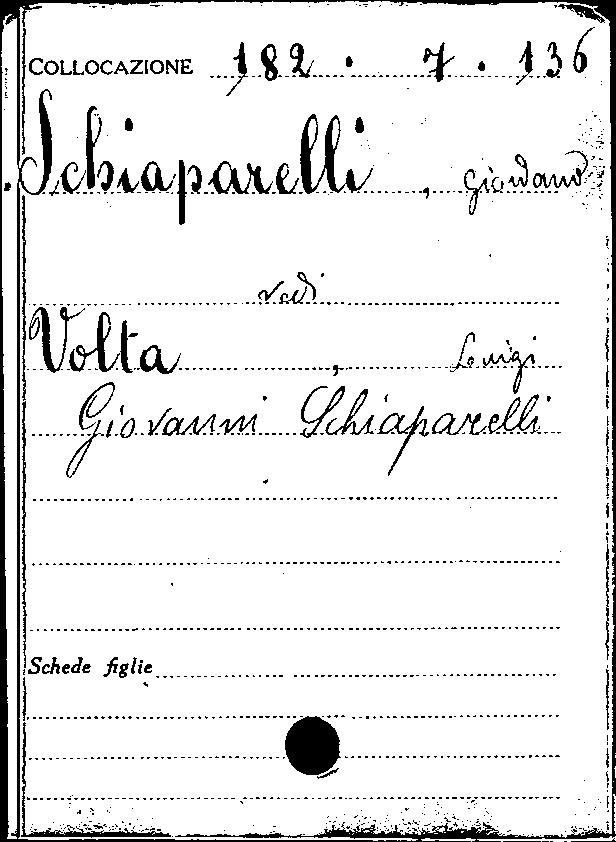 COLLOCAZIONE 182 . 7 . 136
Schiaparelli , Giordano
vedi
Volta , Luigi
Giovanni Schiaparelli
Schede figlie